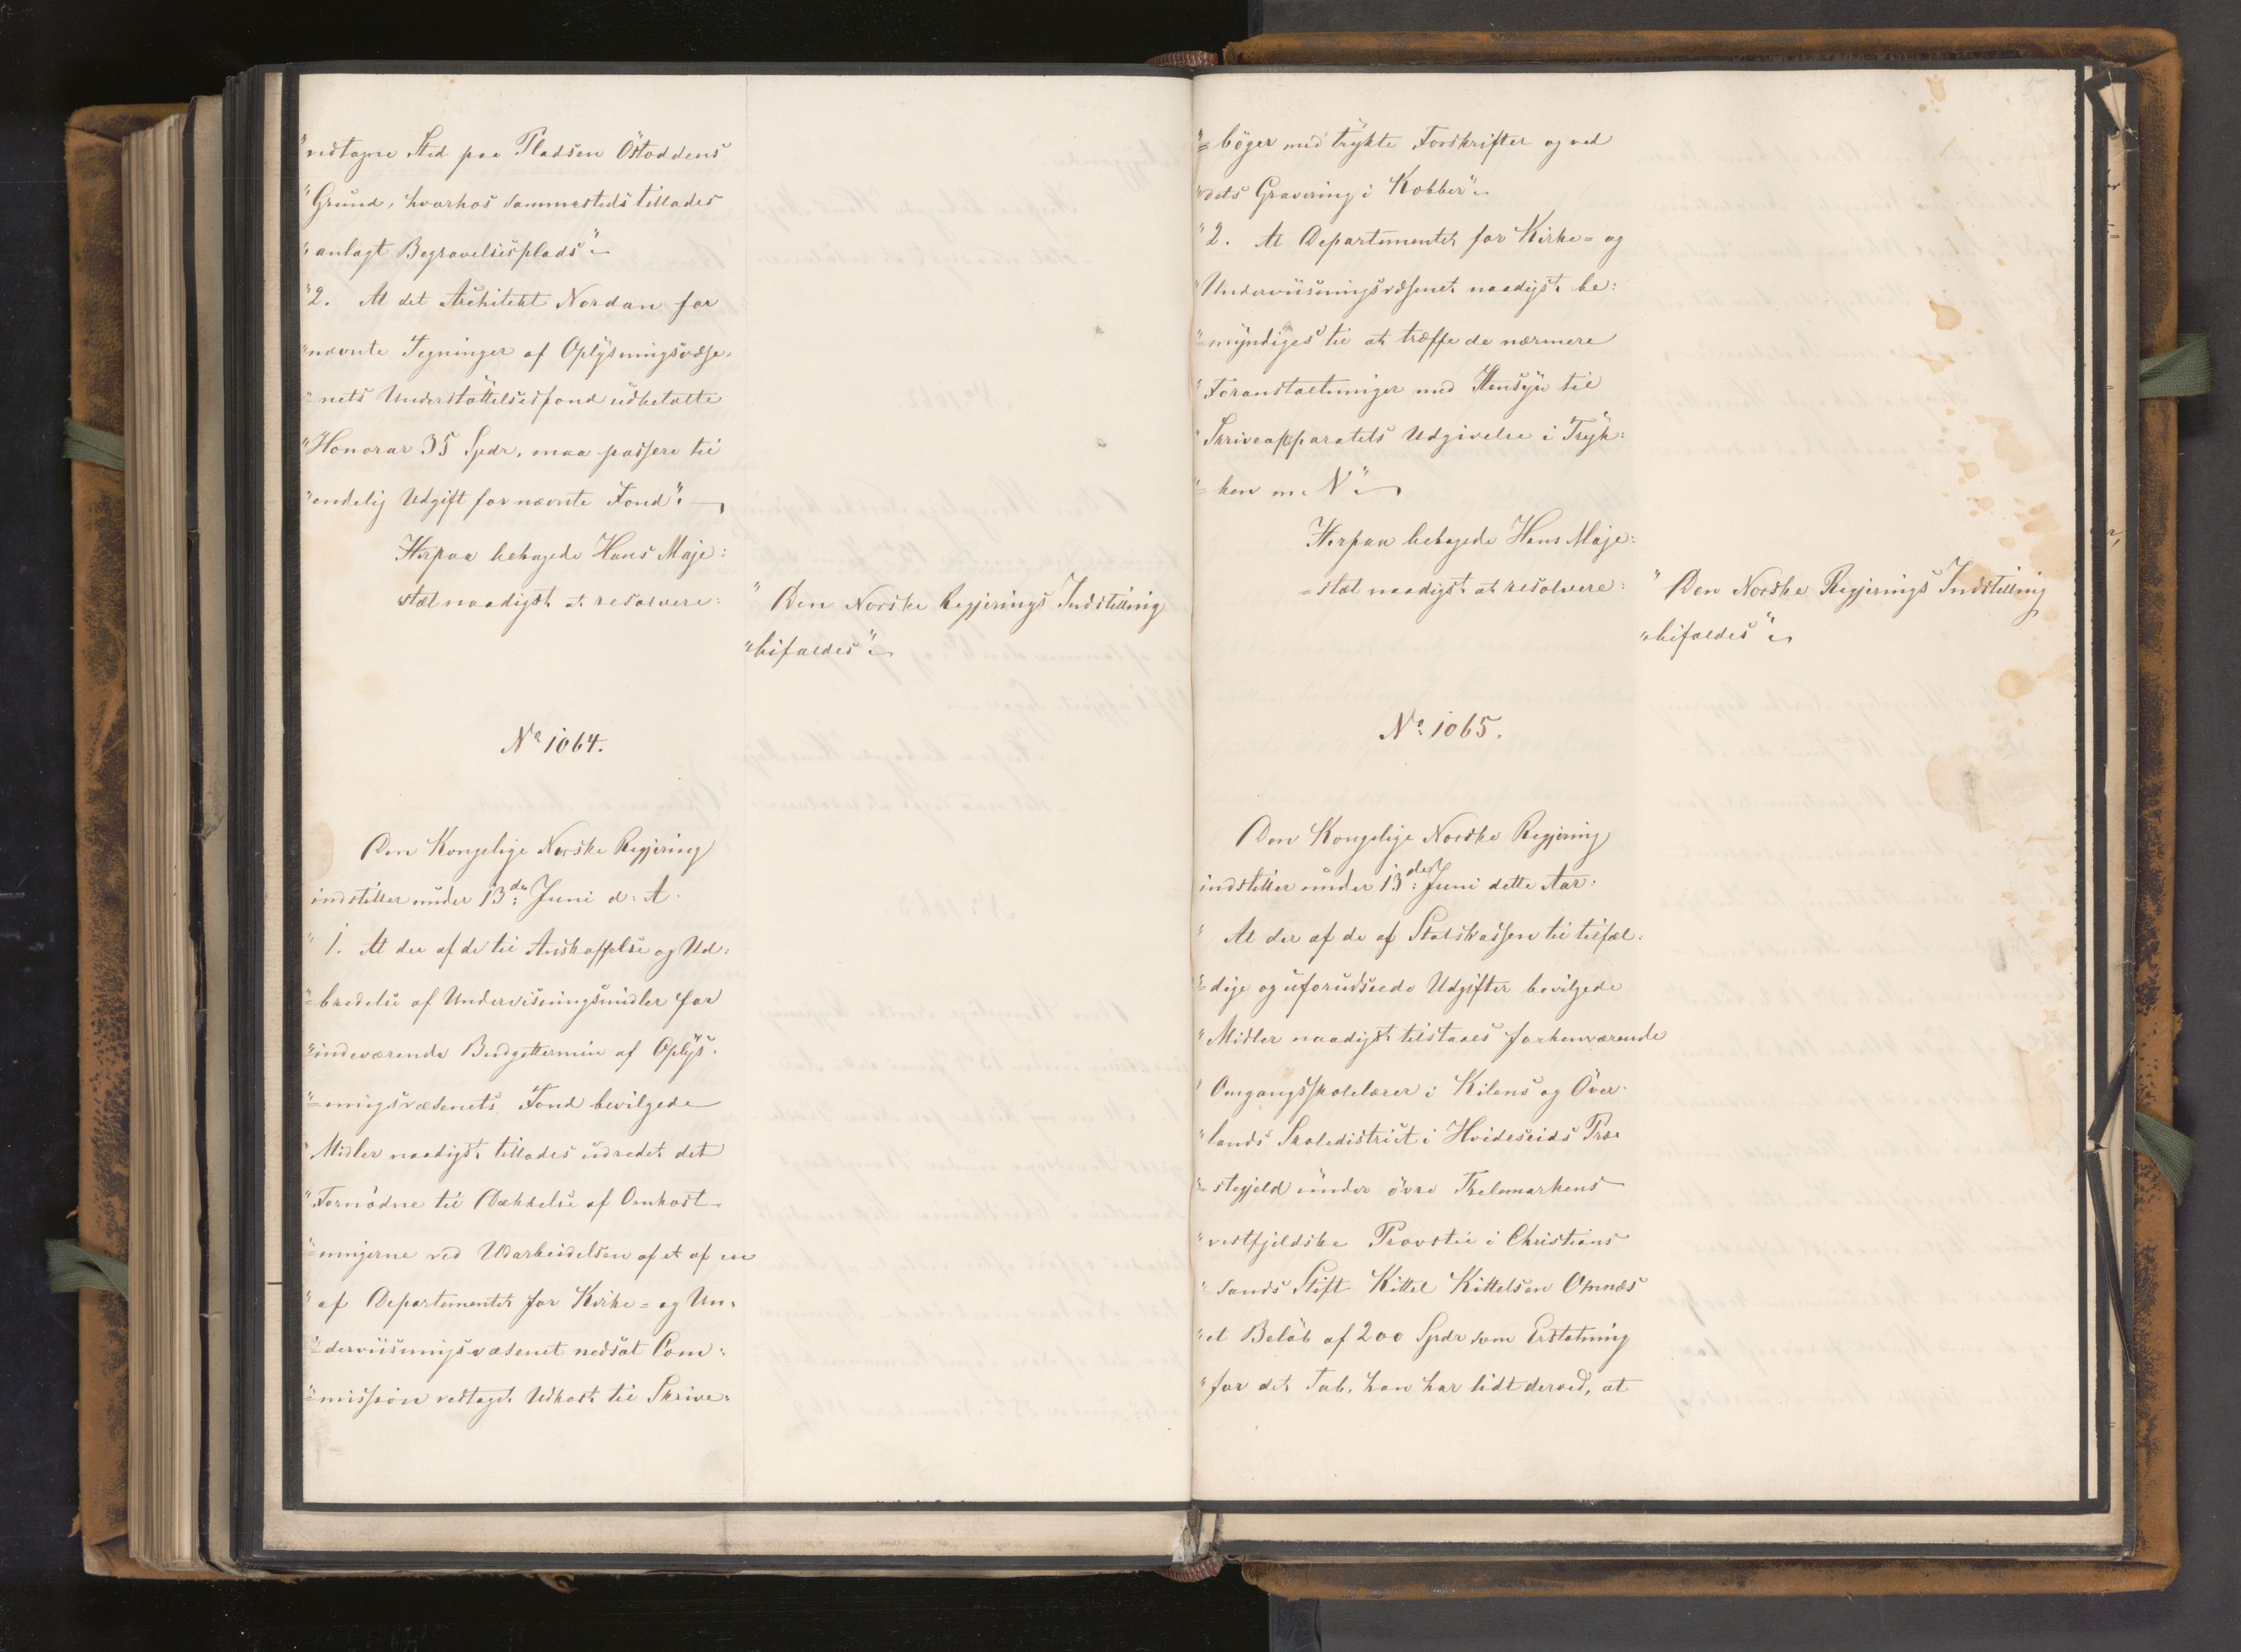 "vedtagne Sted paa Pladsen Östoddens
"Grund, hvorhos sammesteds tillades
"anlagt Begravelsesplads".
"2. At det Architekt Nordan for
"nævnte Tegninger af Oplysningsvæse-
"nets Understöttelsesfond udbetalte
"Honorar 35 Spdr. maa passere til
"endelig Udgift for nævnte Fond".
Herpaa behagede Hans Maje:
stæt naadigst at resolvere:
"Den Norske Regjerings Indstilling
"bifaldes".
No 1064.
Den Kongelige Norske Regjering
indstiller under 13de Juni d. A.
"1. At der af de til Anskaffelse og Ud:
"=bredelse af Undervisningsmidler for
"indeværende Budgettermin af Oplys-
"=ningsvæsenets Fond bevilgede
"Midler naadigst tillades udredet det
"Fornödne til Dækkelse af Omkost-
"=ningerne ved Udarbeidelsen af et af en
"af Departementet for Kirke= og Un-
"=derviisningsvæsenet nedsat Com:
"=mission vedtaget Udkast til Skrive-
"=böger med trykte Forskrifter og ved
"dets Gravering i Kobber".
"2. At Departementet for Kirke= og
"Underviisningsvæsenet naadigst be:
"=myndiges til at træffe de nærmere
"Foranstaltninger med Hensyn til
"Skriveapparatets Udgivelse i Tryk:
"=ken m. V".
Herpaa behagede Hans Maje:
=stæt naadigst at resolvere:
"Den Norske Regjerings Indstilling
"bifaldes".
No 1065.
Den Kongelige Norske Regjering
indstiller under 13de Juni dette Aar:
"At der af de af Statskassen til tilfæl-
"=dige og uforudseede Udgifter bevilgede
"Midler naadigst tilstaaes forhenværende
"Omgangsskolelærer i Kilens og Över-
"lands Skoledistrict i Hvideseids Præ-
"=stegjeld under övre Thelemarkens
"vestfjeldske Provsti i Christians-
"sands Stift Kittel Kittelsen Omnæs
"et Belöb af 200 Spdr som Erstatning
"for det Tab, han har lidt derved, at